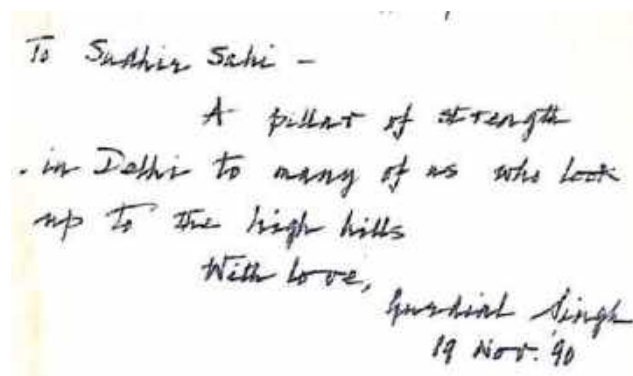 To Sudhir Sahi -
A pillar of strength
in Delhi to many of us who look
up to the high hills
With love,
Gurdial Singh
19 Nov. '90